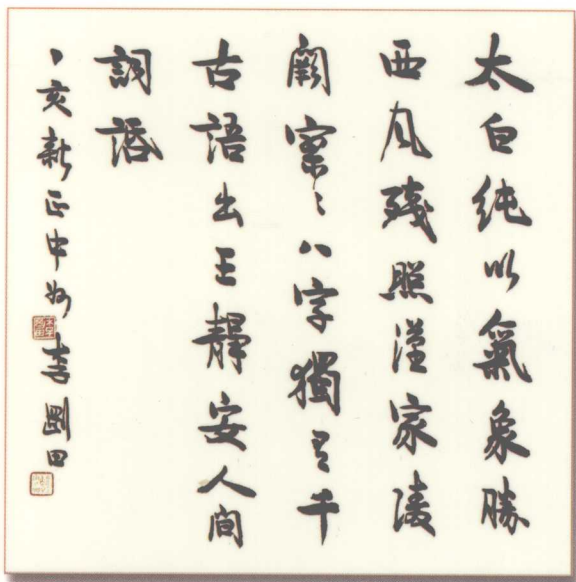 太白純以氣象勝
西风残照漢家陵
闕寥〻八字獨有千
古語出王靜安人間
詞話
丁亥新正中州李剛田